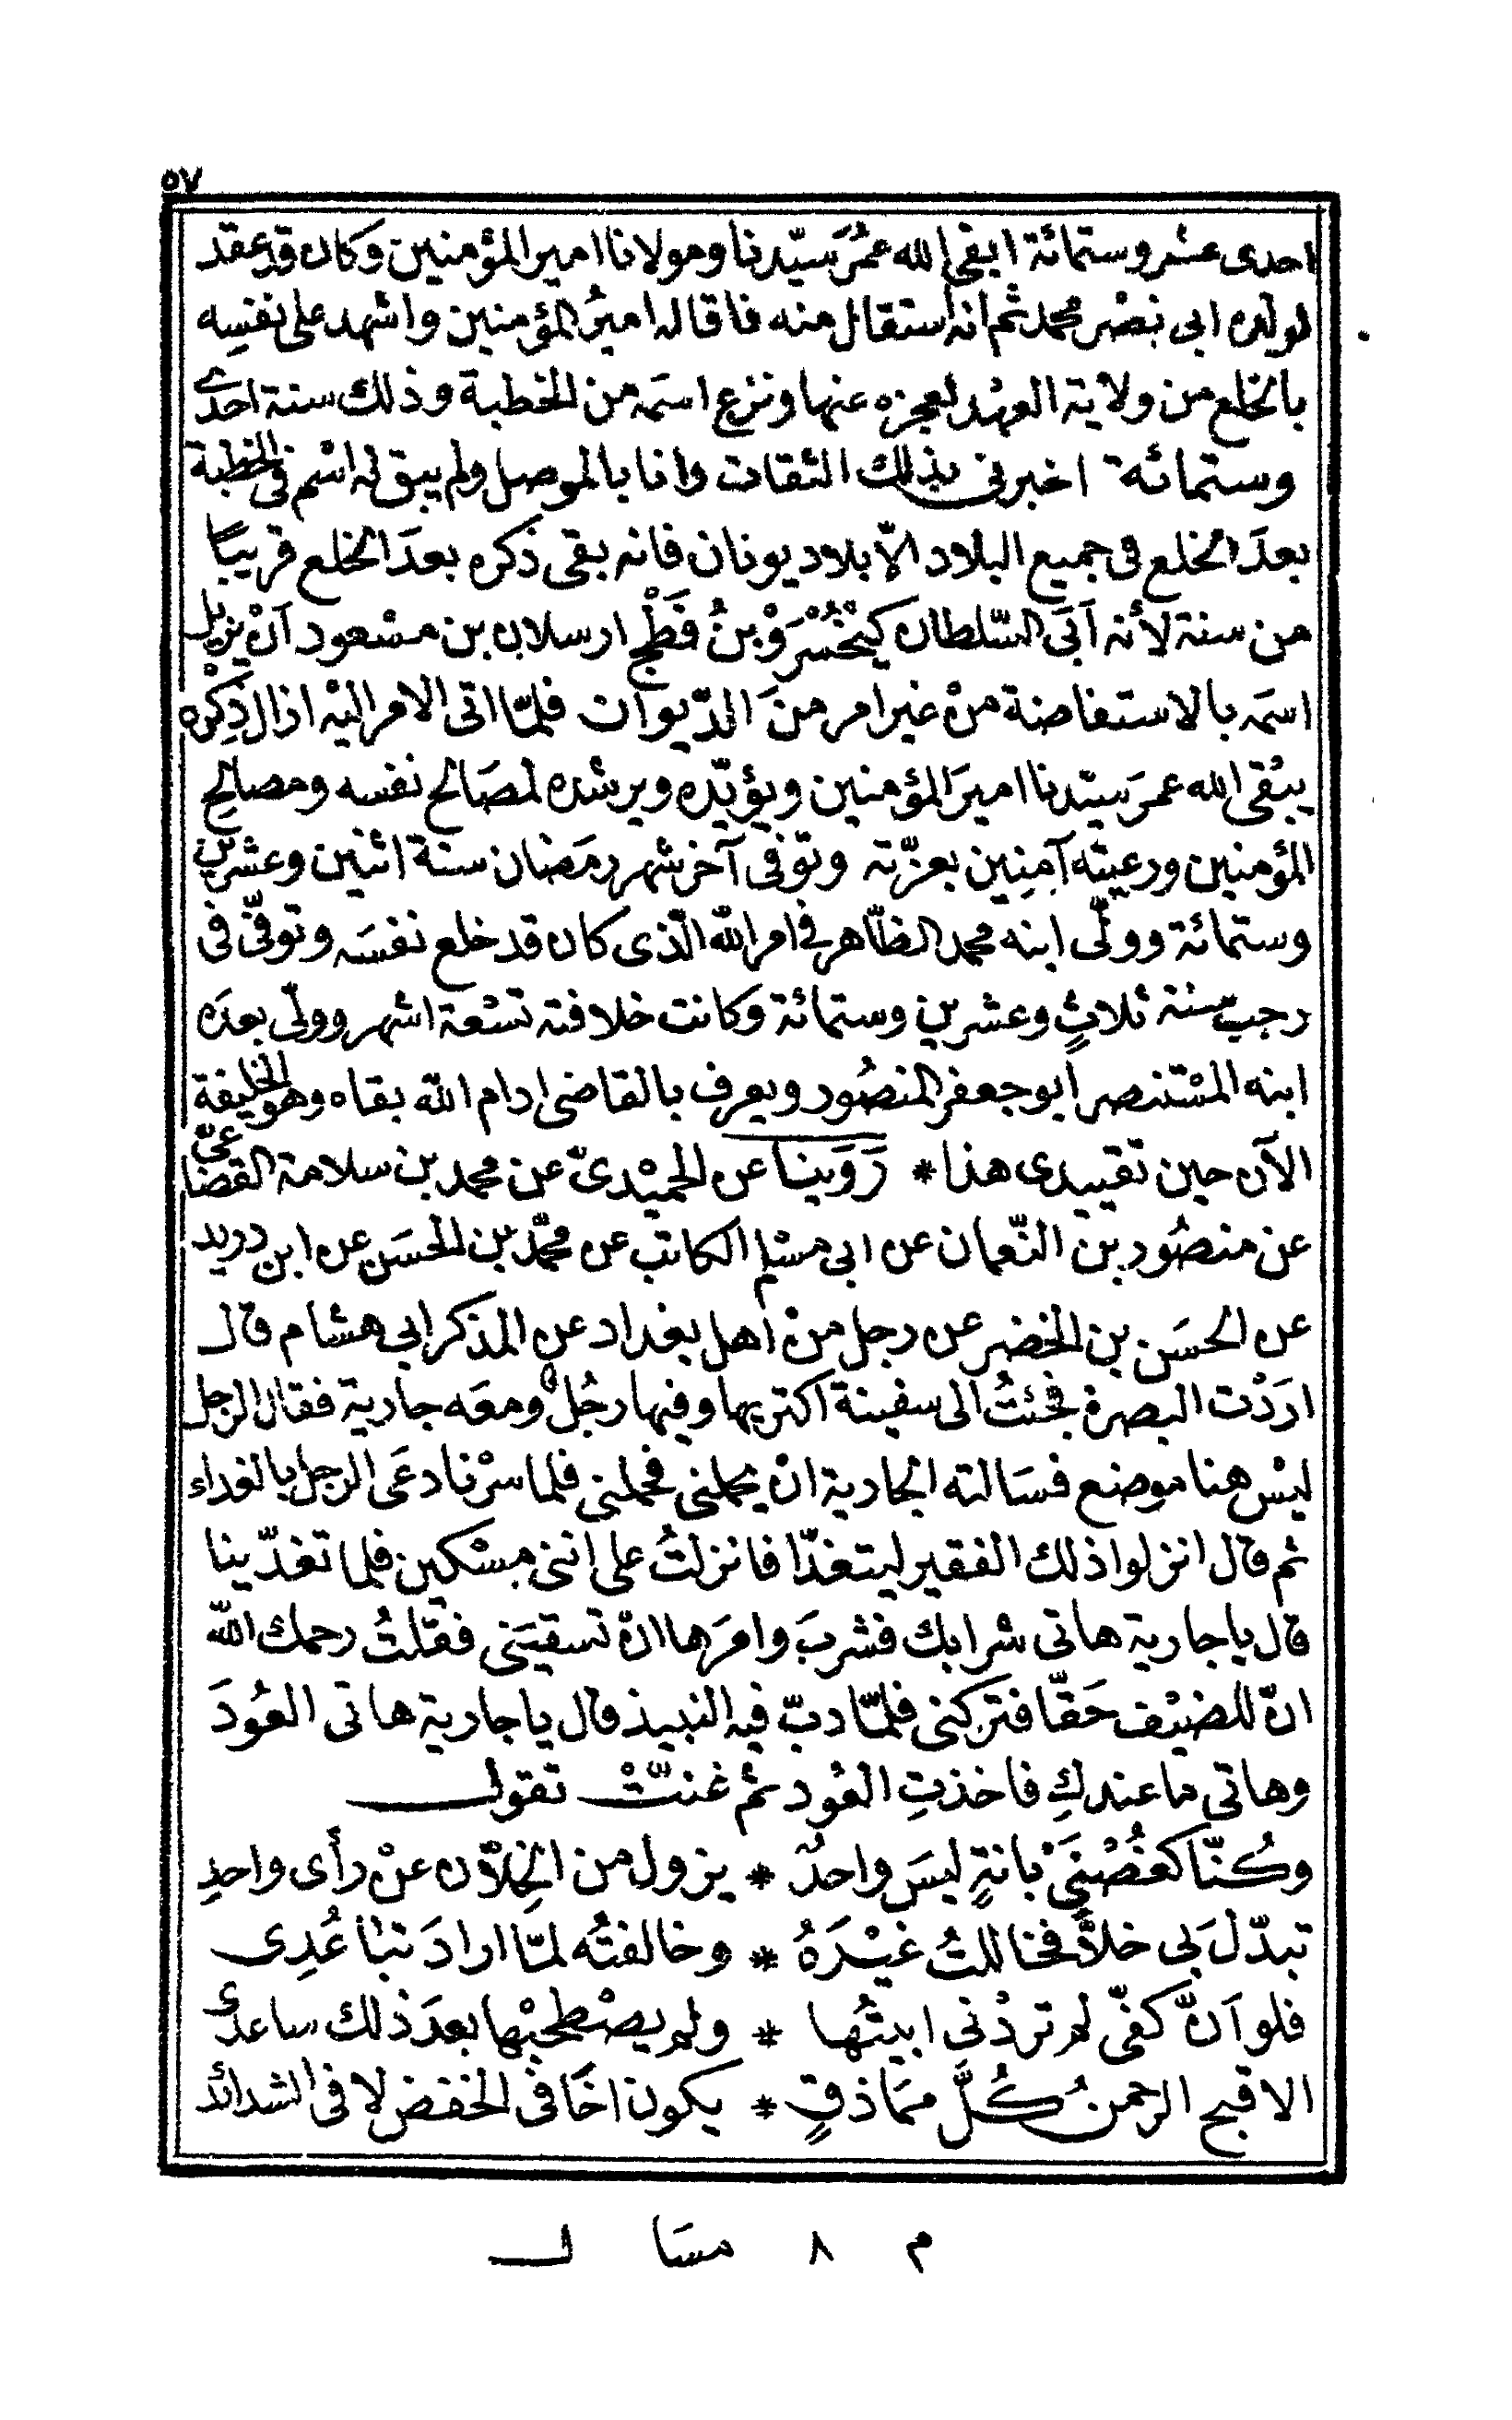 ٥٧
احدى عشر وستمائة ابقى الله عمُرَ سيّدنا ومولانا امير المؤمنين وكان قد عقد
لولده ابى نصْر محمد ثم انه استقال منه فاقاله اميرُ المؤمنين واشهد على نفسِه
بالخلع من ولاية العهْد لعجزه عنها ونزع اسمَه من الخطبة وذلك سنة احدى
وستمائة اخبرنى بذلك الثقات وانا بالموصل ولم يبق له اسْم فى الخطبة
بعدَ الخلع فى جميع البلاد الّا بلاد يونان فانه بقى ذكره بعدَ الخلع قريبًا
من سنة لأنه اَبَى السّلطان كيْخُسْرَوْ بنُ قَطْج ارسلان بن مسْعود اَنْ يزيل
اسمَه بالاستفاضة منْ غير امر منَ الدّيوان فلمّا اتى الامر اليْه ازال ذِكْره
يبْقى الله عمرَ سيّدنا اميرَ المؤمنين ويؤيّده ويرشده لمصَالح نفسه ومصالحِ
المؤمنين ورعيته آمِنِين بعزّته وتوفى آخر شهر رمَضان سنة اثنين وعشرين
وستمائة وولّى ابنه محمد الظّاهر فى امر اللّه الّذى كان قد خلع نفسَه وتوفّى فى
رجب سنة ثلاثٍ وعشرين وستمائة وكانت خلافته تسْعة اشهر وولّى بعدَه
ابنه المسْتنصر أبو جعفر المنصُور ويعرف بالقاضى ادام اللّه بقاه وهو الخليفة
الآن حين تقييدى هذا * رَوَينا عن الحميْدىّ عن محمد بن سلامة القضاعىّ
عن منصُور بن النّعمان عن ابى مسْلم الكاتب عن محمّد بن الحسَن عن ابن دريد
عن الحسَن بن الخضر عن رجل منْ أهل بغداد عن المذكر ابى هشام قال
اردْت البصرة فجئتُ الى سفينة اكتريها وفيها رجُل ومعَه جارية فقال الرجل
ليْس هنا موضع فسَالته الجارية انْ يحملنى فحملنى فلما سرْنا دعَى الرجل بالغداء
ثم قال انزلوا ذلك الفقير ليتغدّا فانزلتُ على اننى مسْكين فلما تغدّينا
قال يا جارية هاتى شرابك فشربَ وامرَها انْ تسقيَنى فقلتُ رحمك اللّه
انّ للضيْف حَقّا فتركنى فلمّا دبّ فيه النبيذ قال يا جارية هاتى العُودَ
وهاتى ما عندكِ فاخذتِ العُود ثم غنتّْ تقول
وكُنّا كغُصْنَىْ بانةٍ ليسَ واحدٌ * يزول من الخِلّان عنْ رأى واحدِ
تبدّلَ بى خلاًّ فخاللتُ غيْرَهُ * وخالفتُه لمّا ارادَ تباعُدِى
فلو اَنَّ كفّى لم تردْنى ابيتُها * ولم يصْطحبْها بعدَ ذلك ساعدى
الا قبح الرحمنُ كُلَّ ممَاذقٍ * يكون اخًا فى الخفض لا فى الشدائد
م ٨ مسَا ل